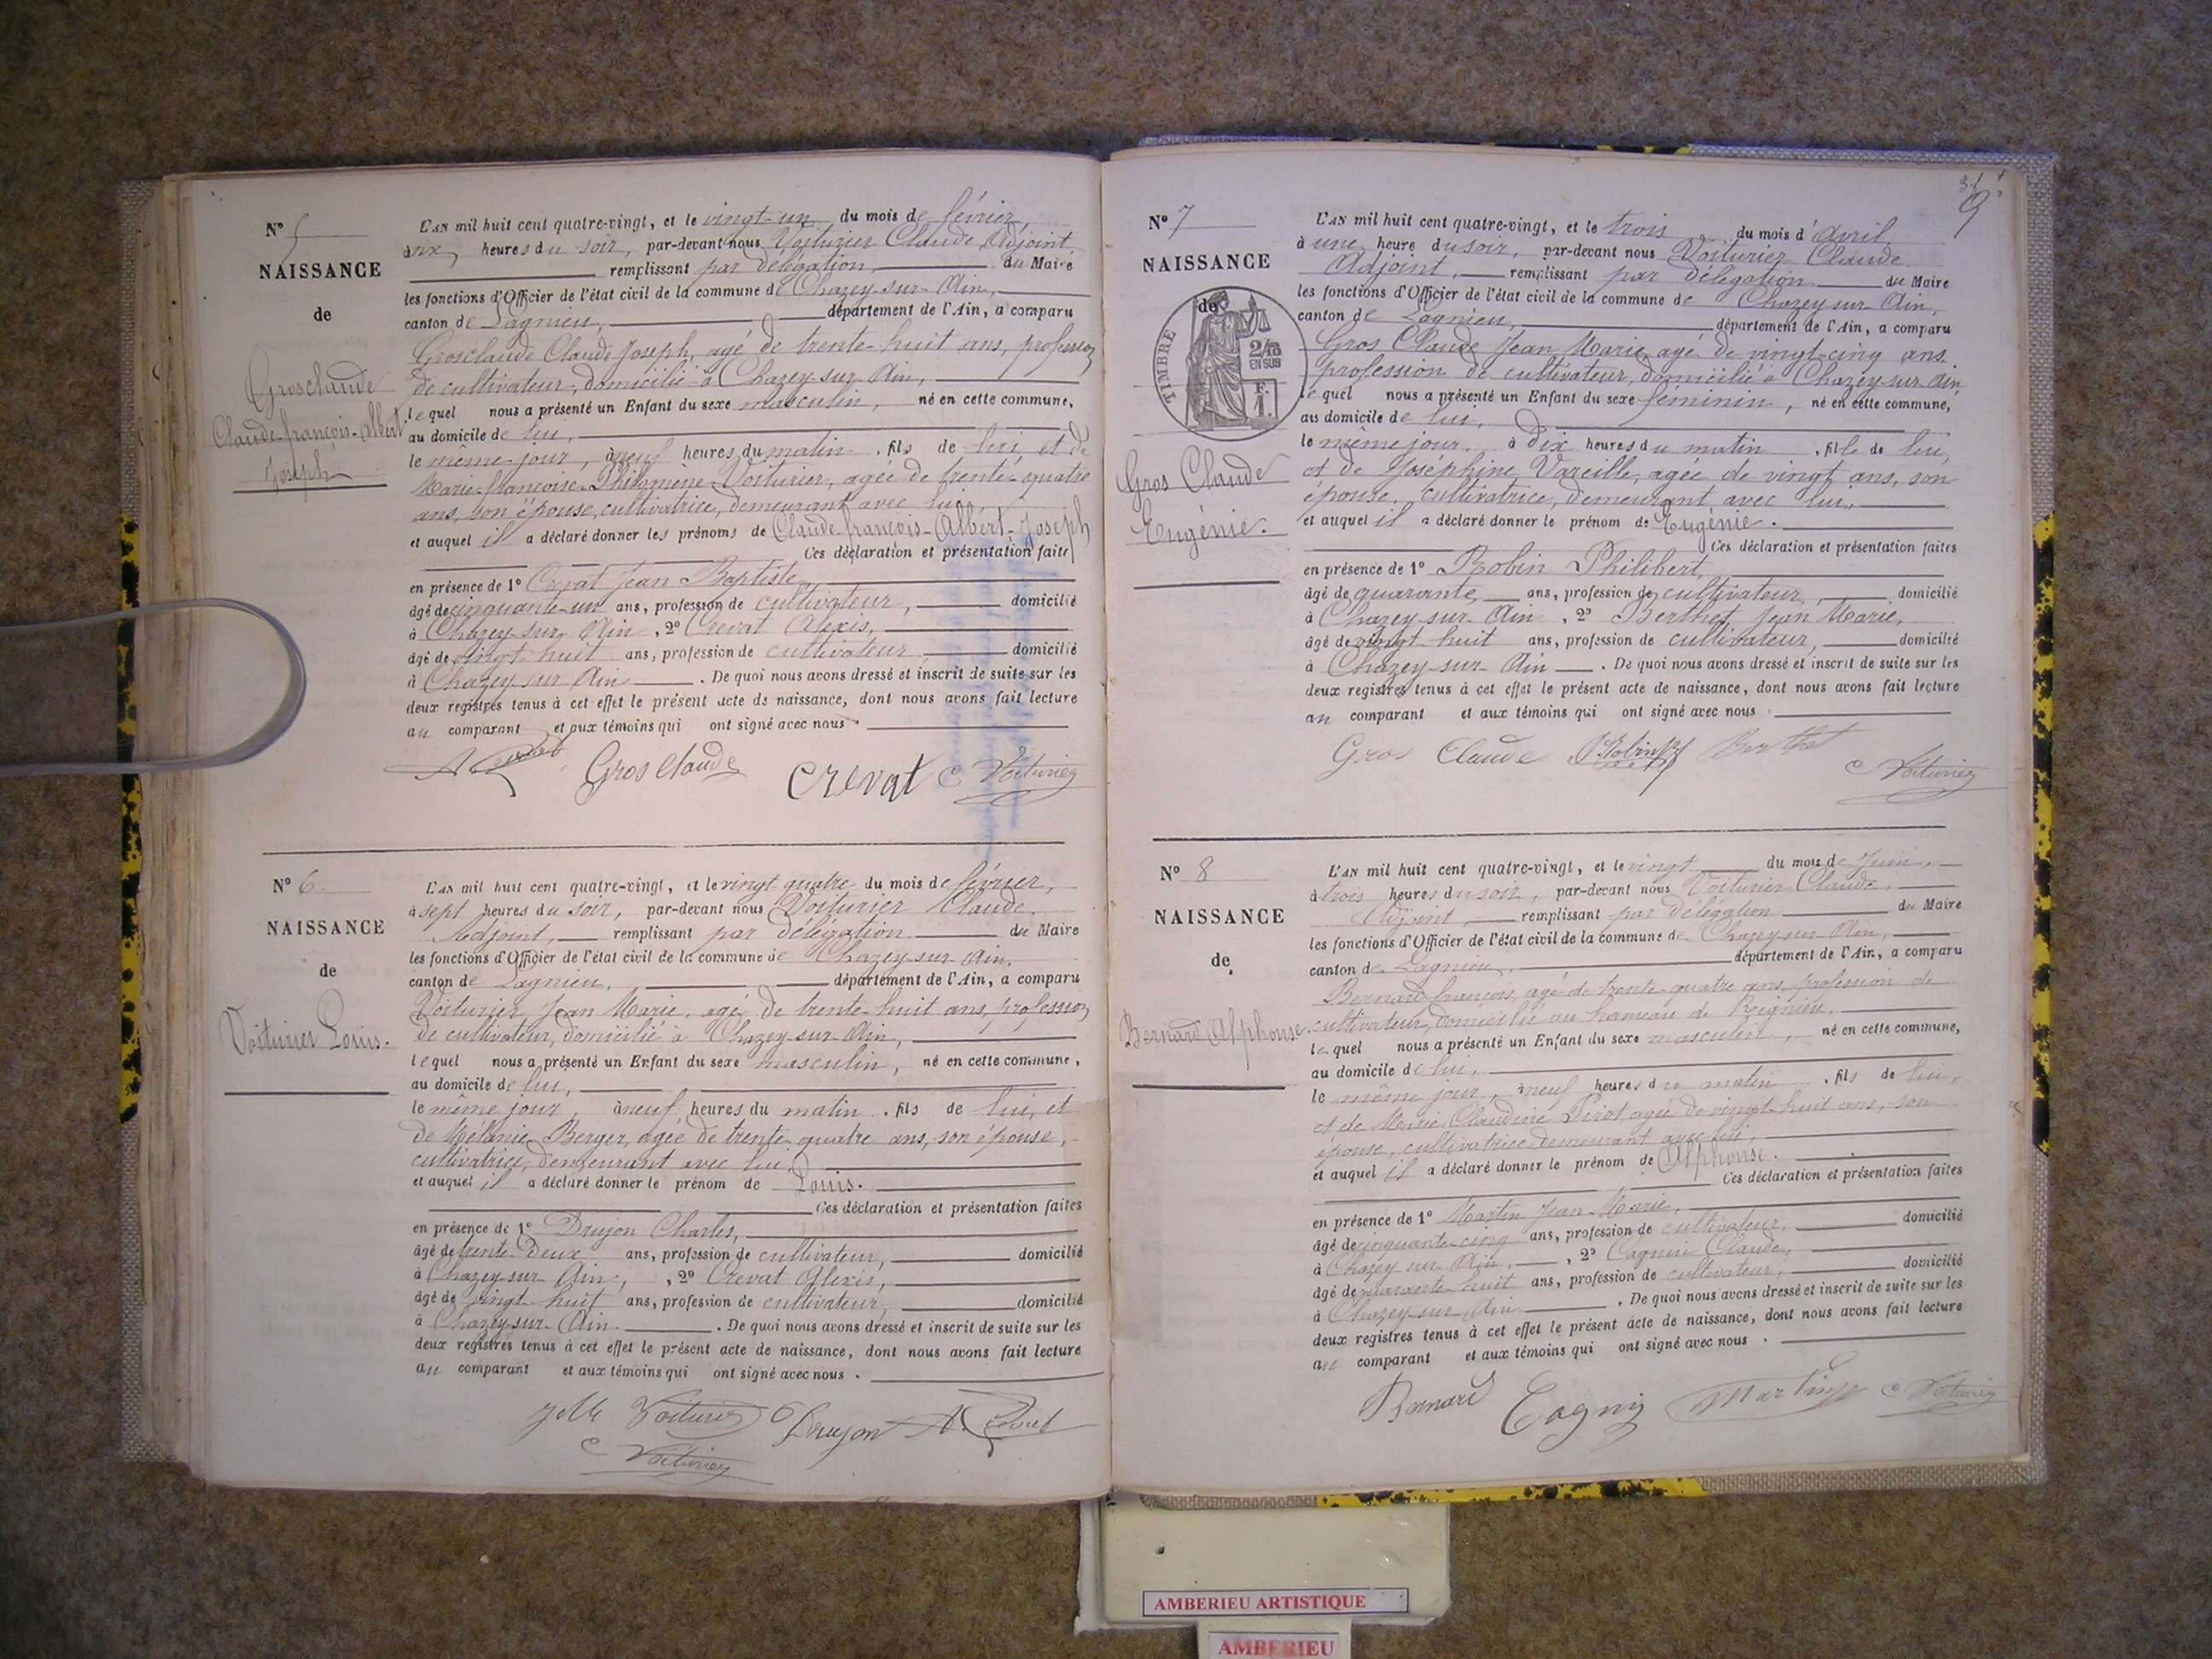 N° 5
NAISSANCE
de
Grosclaude
Claude-françois-Albert
Joseph
L'AN mil huit cent quatre-vingt, et le vingt-un du mois de février,
à six heures du soir, par-devant nous Voiturier Claude Adjoint
remplissant par délégation du Maire
les fonctions d'Officier de l'état civil de la commune de Chazey-sur-Ain,
canton de Lagnieu, département de l'Ain, a comparu
Grosclaude Claude Joseph, agé de trente-huit ans, profession
de cultivateur, domicilié à Chazey-sur-Ain,
lequel nous a présenté un Enfant du sexe masculin, né en cette commune,
au domicile de lui,
le même jour, à neuf heures du matin. fils de lui, et de
Marie-françoise-Philomène Voiturier, agée de trente-quatre
ans, son épouse, cultivatrice, demeurant avec lui,
et auquel il a déclaré donner les prénoms de Claude-françois-Albert-Joseph
Ces déclaration et présentation faite
en présence de 1° Crevat Jean Baptiste,
âgé de cinquante-un ans, profession de cultivateur, domicilié
à Chazey-sur-Ain, 2° Crevat Alexis,
âgé de vingt-huit ans, profession de cultivateur, domicilié
à Chazey-sur-Ain. De quoi nous avons dressé et inscrit de suite sur les
deux registres tenus à cet effet le présent acte de naissance, dont nous avons fait lecture
au comparant et aux témoins qui ont signé avec nous.
A Crevat Gros Claude Crevat C Voiturier
N° 6
NAISSANCE
de
Voiturier Louis.
L'AN mil huit cent quatre-vingt, et le vingt quatre du mois de février,
à sept heures du soir, par-devant nous Voiturier Claude
Adjoint, remplissant par délégation du Maire
les fonctions d'Officier de l'état civil de la commune de Chazey-sur-Ain,
canton de Lagnieu, département de l'Ain, a comparu
Voiturier Jean Marie, agé de trente-huit ans, profession
de cultivateur, domicilié à Chazey-sur-Ain,
lequel nous a présenté un Enfant du sexe masculin, né en cette commune,
au domicile de lui,
le même jour, à neuf heures du matin. fils de lui, et
de Mélanie Berger, agée de trente-quatre ans, son épouse,
cultivatrice, demeurant avec lui,
et auquel il a déclaré donner le prénom de Louis.
Ces déclaration et présentation faites
en présence de 1° Drujon Charles,
âgé de trente-deux ans, profession de cultivateur, domicilié
à Chazey-sur-Ain, 2° Crevat Alexis,
âgé de vingt-huit ans, profession de cultivateur, domicilié
à Chazey-sur-Ain. De quoi nous avons dressé et inscrit de suite sur les
deux registres tenus à cet effet le présent acte de naissance, dont nous avons fait lecture
au comparant et aux témoins qui ont signé avec nous.
J M Voiturier Drujon A Crevat
C Voiturier
9
N° 7
NAISSANCE
de
TIMBRE
2/10
EN SUS
F.
1.
Gros Claude
Eugénie.
L'AN mil huit cent quatre-vingt, et le trois du mois d'avril
à une heure du soir, par-devant nous Voiturier Claude
Adjoint, remplissant par délégation du Maire
les fonctions d'Officier de l'état civil de la commune de Chazey-sur-Ain,
canton de Lagnieu, département de l'Ain, a comparu
Gros Claude Jean Marie, agé de vingt-cinq ans
profession de cultivateur, domicilié à Chazey-sur-Ain
lequel nous a présenté un Enfant du sexe féminin, né en cette commune,
au domicile de lui,
le même jour, à dix heures du matin. fille de lui,
et de Joséphine Vareille, agée de vingt ans, son
épouse, cultivatrice, demeurant avec lui,
et auquel il a déclaré donner le prénom de Eugénie.
Ces déclaration et présentation faites
en présence de 1° Robin Philibert,
âgé de quarante ans, profession de cultivateur, domicilié
à Chazey-sur-Ain, 2° Berthet Jean Marie,
âgé de vingt-huit ans, profession de cultivateur, domicilié
à Chazey-sur-Ain. De quoi nous avons dressé et inscrit de suite sur les
deux registres tenus à cet effet le présent acte de naissance, dont nous avons fait lecture
au comparant et aux témoins qui ont signé avec nous.
Gros Claude P. Robin Berthet
C Voiturier
N° 8
NAISSANCE
de
Bernard Alphonse.
L'AN mil huit cent quatre-vingt, et le vingt du mois de Juin,
à trois heures du soir, par-devant nous Voiturier Claude,
Adjoint, remplissant par délégation du Maire
les fonctions d'Officier de l'état civil de la commune de Chazey-sur-Ain,
canton de Lagnieu, département de l'Ain, a comparu
Bernard françois, agé de trente-quatre ans, profession de
cultivateur, domicilié au hameau de Rignieu,
lequel nous a présenté un Enfant du sexe masculin, né en cette commune,
au domicile de lui,
le même jour, à neuf heures du matin. fils de lui,
et de Marie Claudine Pirot, agée de vingt-huit ans, son
épouse, cultivatrice demeurant avec lui,
et auquel il a déclaré donner le prénom de Alphonse.
Ces déclaration et présentation faites
en présence de 1° Martin Jean-Marie,
âgé de cinquante-cinq ans, profession de cultivateur, domicilié
à Chazey-sur-Ain, 2° Cagnin Claude,
âgé de quarante-huit ans, profession de cultivateur, domicilié
à Chazey-sur-Ain. De quoi nous avons dressé et inscrit de suite sur les
deux registres tenus à cet effet le présent acte de naissance, dont nous avons fait lecture
au comparant et aux témoins qui ont signé avec nous.
Bernard Cagnin Martin C Voiturier
AMBERIEU ARTISTIQUE
AMBERIEU